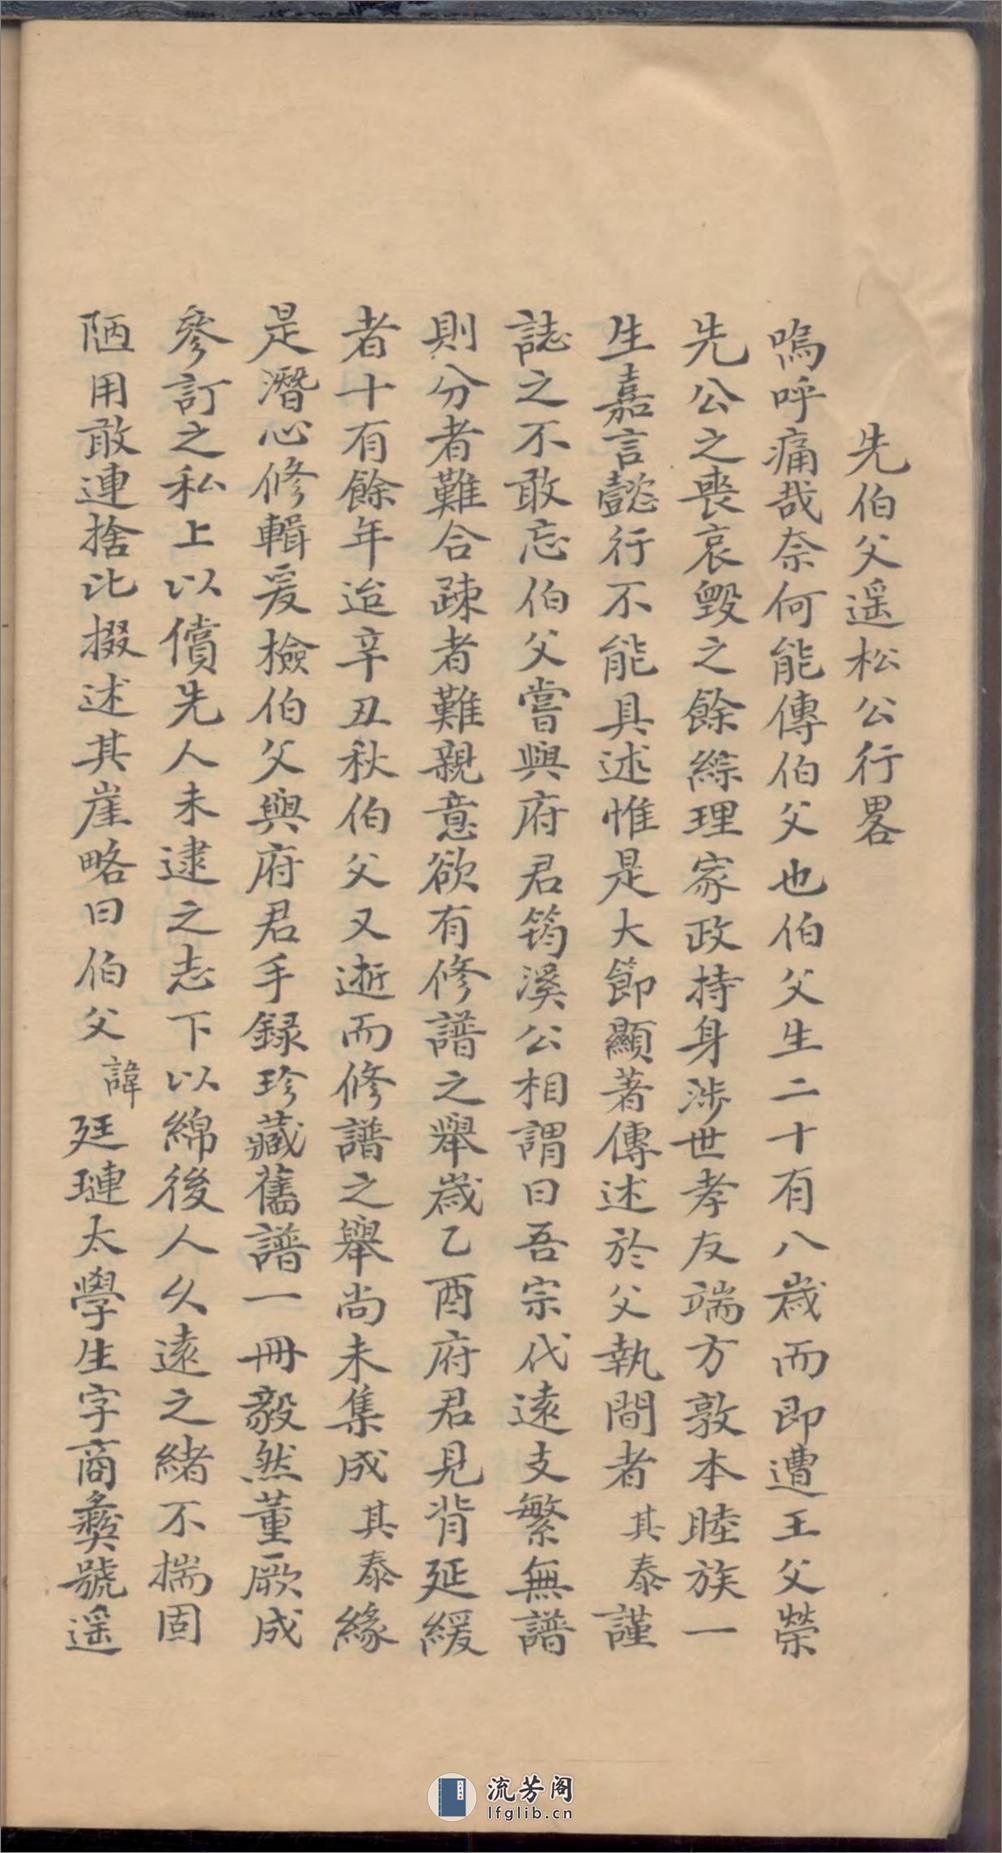 先伯父遥松公行畧
嗚呼痛哉奈何能傳伯父也伯父生二十有八歲而即遭王父榮
先公之喪哀毀之餘綜理家政持身涉世孝友端方敦本睦族一
生嘉言懿行不能具述惟是大節顯著傳述於父執間者其泰謹
誌之不敢忘伯父嘗與府君筠溪公相謂曰吾宗代遠支繁無譜
則分者難合疎者難親意欲有修譜之舉歲乙酉府君見背延緩
者十有餘年迨辛丑秋伯父又逝而修譜之舉尚未集成其泰緣
是潛心修輯爰檢伯父與府君手録珍藏舊譜一冊毅然董厥成
參訂之私上以償先人未逮之志下以綿後人久遠之緒不揣固
陋用敢連捨比掇述其崖略曰伯父諱廷璉太學生字商彝號遥
流芳阁
lfglib.cn